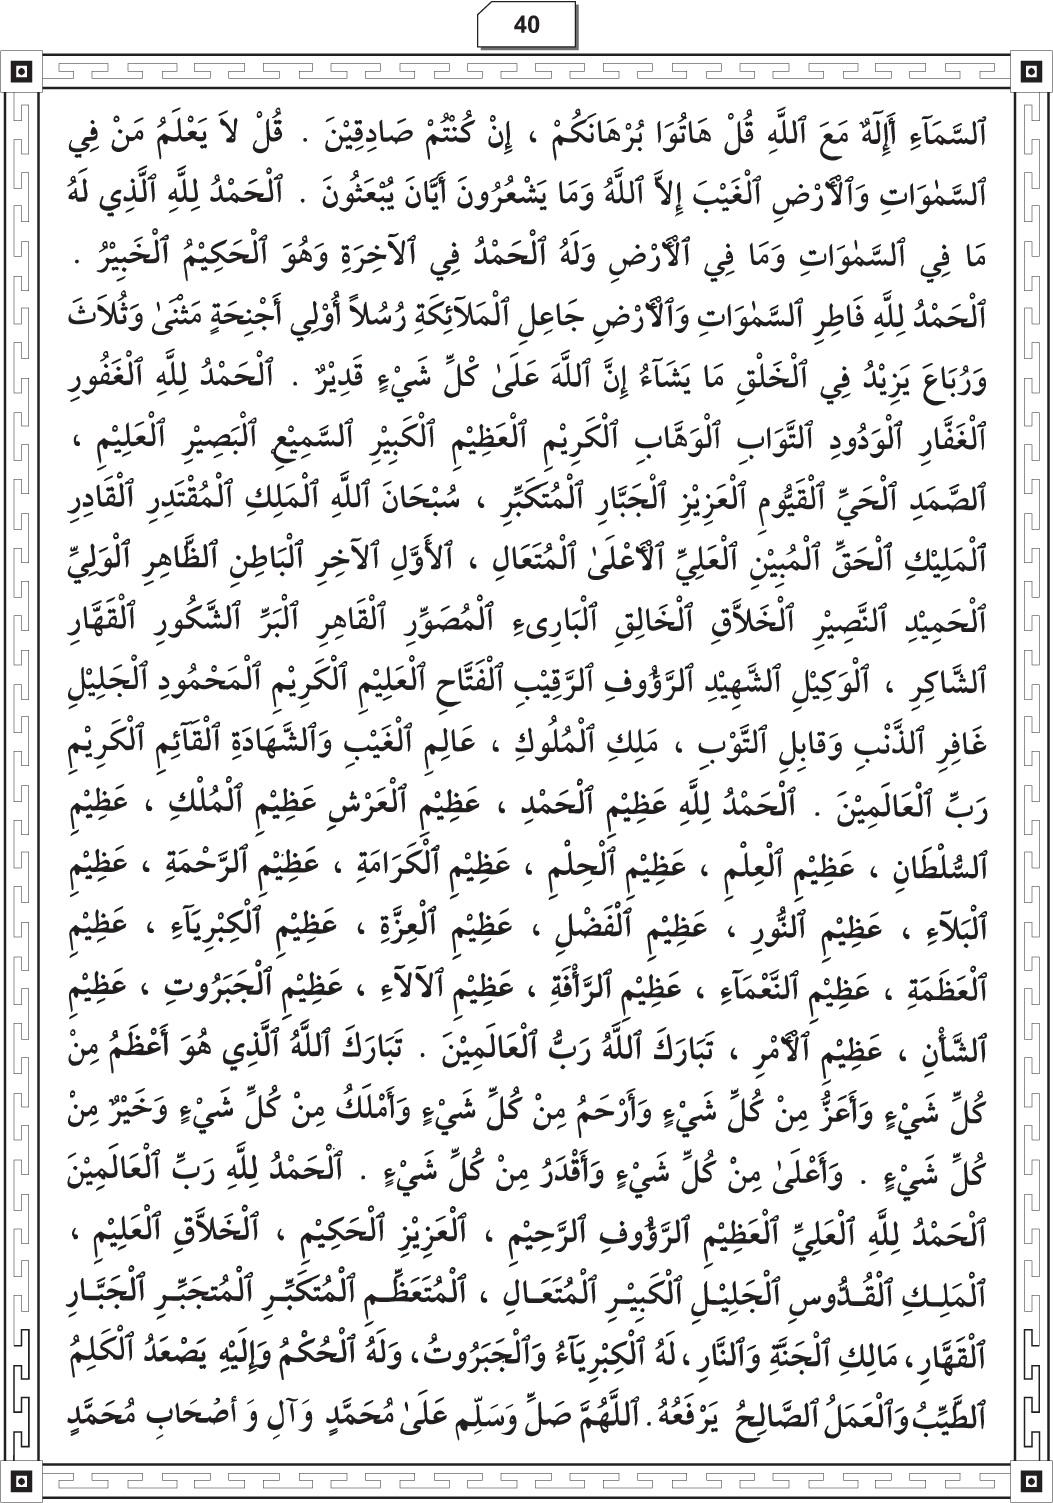 40
ٱلسَّمَآءِ أَإِلَٓهٌ مَعَ ٱللَّهِ قُلْ هَاتُوَا بُرْهَانَكُمْ ، إِنْ كُنْتُمْ صَادِقِيْنَ . قُلْ لاَ يَعْلَمُ مَنْ فِي
ٱلسَّمٰوَاتِ وَٱلْأَرْضِ ٱلْغَيْبَ إِلاَّ ٱللَّهُ وَمَا يَشْعُرُونَ أَيَّانَ يُبْعَثُونَ . ٱلْحَمْدُ لِلَّهِ ٱلَّذِي لَهُ
مَا فِي ٱلسَّمٰوَاتِ وَمَا فِي ٱلْأَرْضِ وَلَهُ ٱلْحَمْدُ فِي ٱلآخِرَةِ وَهُوَ ٱلْحَكِيْمُ ٱلْخَبِيْرُ .
ٱلْحَمْدُ لِلَّهِ فَاطِرِ ٱلسَّمٰوَاتِ وَٱلْأَرْضِ جَاعِلِ ٱلْمَلآئِكَةِ رُسُلاً أُوْلِي أَجْنِحَةٍ مَثْنَىٰ وَثُلاَثَ
وَرُبَاعَ يَزِيْدُ فِي ٱلْخَلْقِ مَا يَشَآءُ إِنَّ ٱللَّهَ عَلَىٰ كُلِّ شَيْءٍ قَدِيْرٌ . ٱلْحَمْدُ لِلَّهِ ٱلْغَفُورِ
ٱلْغَفَّارِ ٱلْوَدُودِ ٱلتَّوَابِ ٱلْوَهَّابِ ٱلْكَرِيْمِ ٱلْعَظِيْمِ ٱلْكَبِيْرِ ٱلسَّمِيْعِ ٱلْبَصِيْرِ ٱلْعَلِيْمِ ،
ٱلصَّمَدِ ٱلْحَيِّ ٱلْقَيُّومِ ٱلْعَزِيْزِ ٱلْجَبَّارِ ٱلْمُتَكَبِّرِ ، سُبْحَانَ ٱللَّهِ ٱلْمَلِكِ ٱلْمُقْتَدِرِ ٱلْقَادِرِ
ٱلْمَلِيْكِ ٱلْحَقِّ ٱلْمُبِيْنِ ٱلْعَلِيِّ ٱلْأَعْلَىٰ ٱلْمُتَعَالِ ، ٱلأَوَّلِ ٱلآخِرِ ٱلْبَاطِنِ ٱلظَّاهِرِ ٱلْوَلِيِّ
ٱلْحَمِيْدِ ٱلنَّصِيْرِ ٱلْخَلاَّقِ ٱلْخَالِقِ ٱلْبَارِىءِ ٱلْمُصَوِّرِ ٱلْقَاهِرِ ٱلْبَرِّ ٱلشَّكُورِ ٱلْقَهَّارِ
ٱلشَّاكِرِ ، ٱلْوَكِيْلِ ٱلشَّهِيْدِ ٱلرَّؤُوفِ ٱلرَّقِيْبِ ٱلْفَتَّاحِ ٱلْعَلِيْمِ ٱلْكَرِيْمِ ٱلْمَحْمُودِ ٱلْجَلِيْلِ
غَافِرِ ٱلذَّنْبِ وَقابِلِ ٱلتَّوْبِ ، مَلِكِ ٱلْمُلُوكِ ، عَالِمِ ٱلْغَيْبِ وَٱلشَّهَادَةِ ٱلْقَآئِمِ ٱلْكَرِيْمِ
رَبِّ ٱلْعَالَمِيْنَ . ٱلْحَمْدُ لِلَّهِ عَظِيْمِ ٱلْحَمْدِ ، عَظِيْمِ ٱلْعَرْشِ عَظِيْمِ ٱلْمُلْكِ ، عَظِيْمِ
ٱلسُّلْطَانِ ، عَظِيْمِ ٱلْعِلْمِ ، عَظِيْمِ ٱلْحِلْمِ ، عَظِيْمِ ٱلْكَرَامَةِ ، عَظِيْمِ ٱلرَّحْمَةِ ، عَظِيْمِ
ٱلْبَلآءِ ، عَظِيْمِ ٱلنُّورِ ، عَظِيْمِ ٱلْفَضْلِ ، عَظِيْمِ ٱلْعِزَّةِ ، عَظِيْمِ ٱلْكِبْرِيَآءِ ، عَظِيْمِ
ٱلْعَظَمَةِ ، عَظِيْمِ ٱلنَّعْمَآءِ ، عَظِيْمِ ٱلرَّأْفَةِ ، عَظِيْمِ ٱلآلآءِ ، عَظِيْمِ ٱلْجَبَرُوتِ ، عَظِيْمِ
ٱلشَّأْنِ ، عَظِيْمِ ٱلْأَمْرِ ، تَبَارَكَ ٱللَّهُ رَبُّ ٱلْعَالَمِيْنَ . تَبَارَكَ ٱللَّهُ ٱلَّذِي هُوَ أَعْظَمُ مِنْ
كُلِّ شَيْءٍ وَأَعَزُّ مِنْ كُلِّ شَيْءٍ وَأَرْحَمُ مِنْ كُلِّ شَيْءٍ وَأَمْلَكُ مِنْ كُلِّ شَيْءٍ وَخَيْرٌ مِنْ
كُلِّ شَيْءٍ . وَأَعْلَىٰ مِنْ كُلِّ شَيْءٍ وَأَقْدَرُ مِنْ كُلِّ شَيْءٍ . ٱلْحَمْدُ لِلَّهِ رَبِّ ٱلْعَالَمِيْنَ
ٱلْحَمْدُ لِلَّهِ ٱلْعَلِيِّ ٱلْعَظِيْمِ ٱلرَّؤُوفِ ٱلرَّحِيْمِ ، ٱلْعَزِيْزِ ٱلْحَكِيْمِ ، ٱلْخَلاَّقِ ٱلْعَلِيْمِ ،
ٱلْمَلِـكِ ٱلْقُـدُّوسِ ٱلْجَلِيْـلِ ٱلْكَبِيْـرِ ٱلْمُتَعَـالِ ، ٱلْمُتَعَظِّـمِ ٱلْمُتَكَبِّـرِ ٱلْمُتجَبِّـرِ ٱلْجَبَّـارِ
ٱلْقَهَّارِ، مَالِكِ ٱلْجَنَّةِ وَٱلنَّارِ ، لَهُ ٱلْكِبْرِيَآءُ وَٱلْجَبَرُوتُ، وَلَهُ ٱلْحُكْمُ وَإِلَيْهِ يَصْعَدُ ٱلْكَلِمُ
ٱلطَّيِّبُ وَٱلْعَمَلُ ٱلصَّالِحُ يَرْفَعُهُ . ٱللَّهُمَّ صَلِّ وَسَلِّم عَلَىٰ مُحَمَّدٍ وَآلِ وَ أصْحَابِ مُحَمَّدٍ